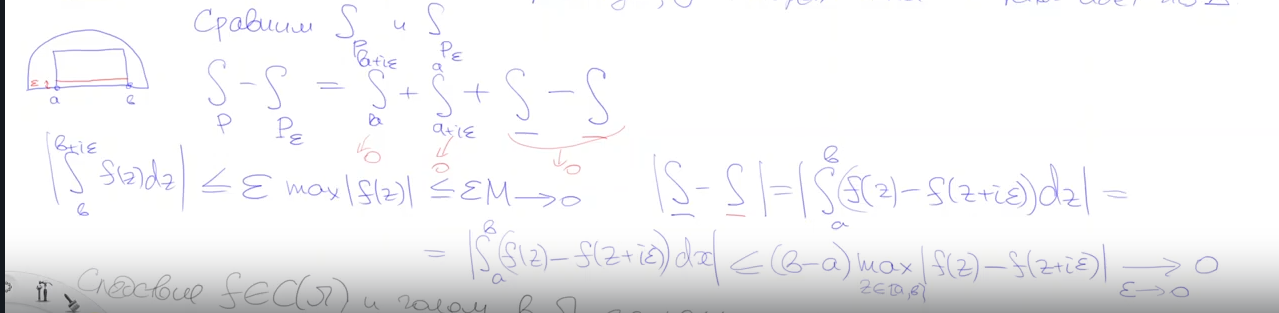 Сравним ∫_P и ∫_{P_ε}
∫_P − ∫_{P_ε} = ∫_в^{в+iε} + ∫_{a+iε}^a + ∫ − ∫
ε a в
→0 →0 →0
|∫_в^{в+iε} f(z)dz| ≤ ε max|f(z)| ≤ εM → 0
|∫ − ∫| = |∫_a^в (f(z) − f(z+iε))dz| =
= |∫_a^в (f(z) − f(z+iε))dx| ≤ (в−a) max_{z∈[a,в]} |f(z) − f(z+iε)| →_{ε→0} 0
Следствие f∈C(Ω) и в